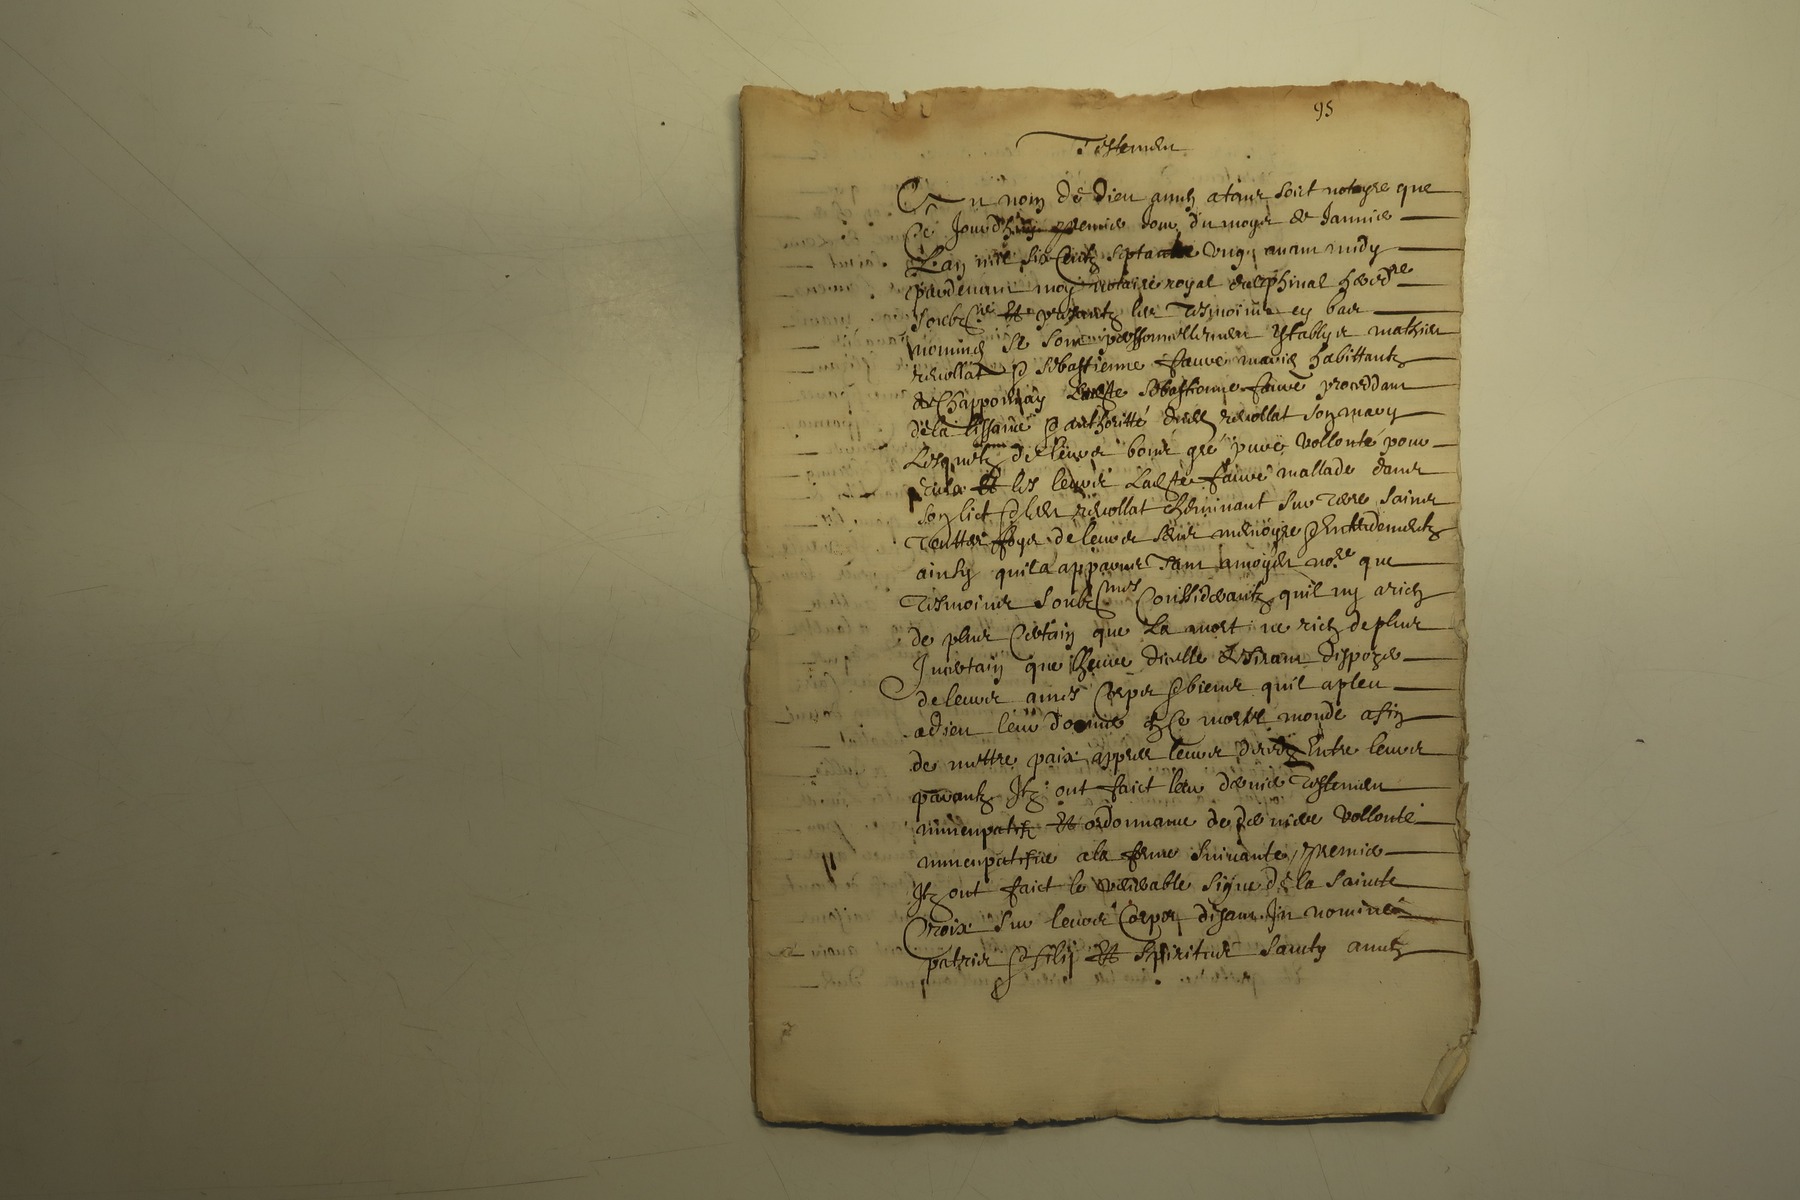 95
Testemen
Au nom de Dieu amen atous soict notoyre que
Ce Jourdhuy premier Jour du moys de Janvier
Lan mil six Centz septante ung avant midy
pardevant moy notaire royal dalphinal hered^re
soubz^ne et presentz les Tesmoins en bas
nommes se sont personnellement establys mathieu
revollat & sebastienne faure maries habittantz
de Chapponnay Lade sebastienne faure proceddant
de la lissance & authoritté dud revollat son mary
Lesquelz de leurs bons gre pure vollonte pour
eulx et les leurs Lade faure mallade dans
son lict & led revollat cheminant sur terre sains
touttes foys de leurs sens memoyre & Entendementz
ainsy quil a apparus Tant amoyd no^re que
Tesmoins soubz^nes Considerantz quil ny a rien
de plus Certain que La mort ne rien de plus
Incertain que lheure dicelle desirant disposer
de leurs ames Corps & biens quil a pleu
a dieu leur donner en Ce mortel monde afin
de mettre paix appres leurs deces Entre leurs
parantz Ilz ont faict leur dernier Testemen
nuncupatif et ordonnance de derniere vollonté
nuncupatifve a la forme suivante, premier
Ilz ont faict le venerable signe de la saincte
Croix sur leurs Corps disant In nomine
patris & filij et spiritus sancty amen